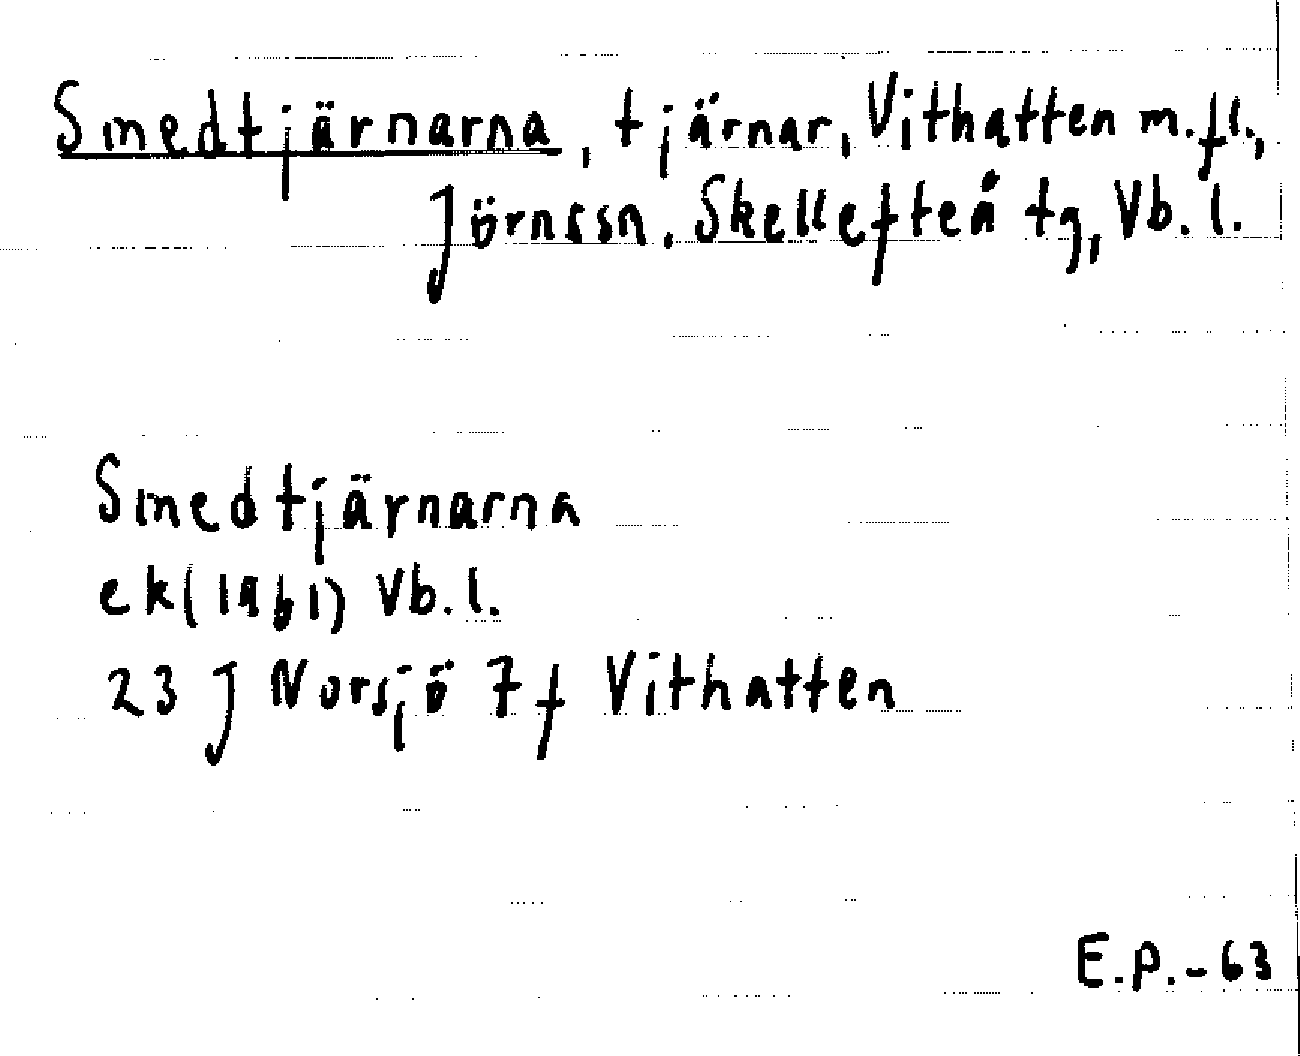 Smedtjärnarna, tjärnar, Vithatten m.fl.,
Jörnssn, Skellefteå tg, Vb. l.
Smedtjärnarna
ek(1961) Vb. l.
23 J Norsjö 7f Vithatten
E.P.-63